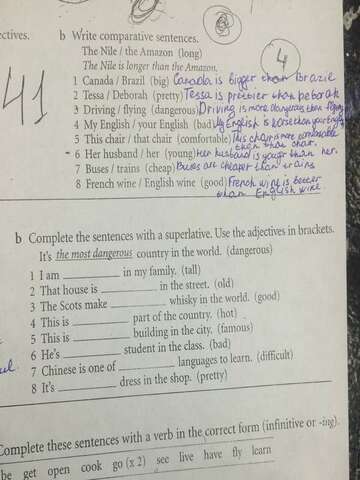 ctives.
b Write comparative sentences.
The Nile / the Amazon (long)
The Nile is longer than the Amazon.
4
41
1 Canada / Brazil (big) Canada is bigger than Brazil
2 Tessa / Deborah (pretty) Tessa is prettier than Deborah
3 Driving / flying (dangerous) Driving is more dangerous than flying
4 My English / your English (bad) My English is worse than your English
5 This chair / that chair (comfortable) This chair is more comfortable
than that chair.
6 Her husband / her (young) Her husband is younger than her.
7 Buses / trains (cheap) Buses are cheaper than trains
8 French wine / English wine (good) French wine is better
than English wine.
b Complete the sentences with a superlative. Use the adjectives in brackets.
It's the most dangerous country in the world. (dangerous)
1 I am ________ in my family. (tall)
2 That house is ________ in the street. (old)
3 The Scots make ________ whisky in the world. (good)
4 This is ________ part of the country. (hot)
5 This is ________ building in the city. (famous)
6 He's ________ student in the class. (bad)
7 Chinese is one of ________ languages to learn. (difficult)
8 It's ________ dress in the shop. (pretty)
Complete these sentences with a verb in the correct form (infinitive or -ing).
be get open cook go (x 2) see live have fly learn